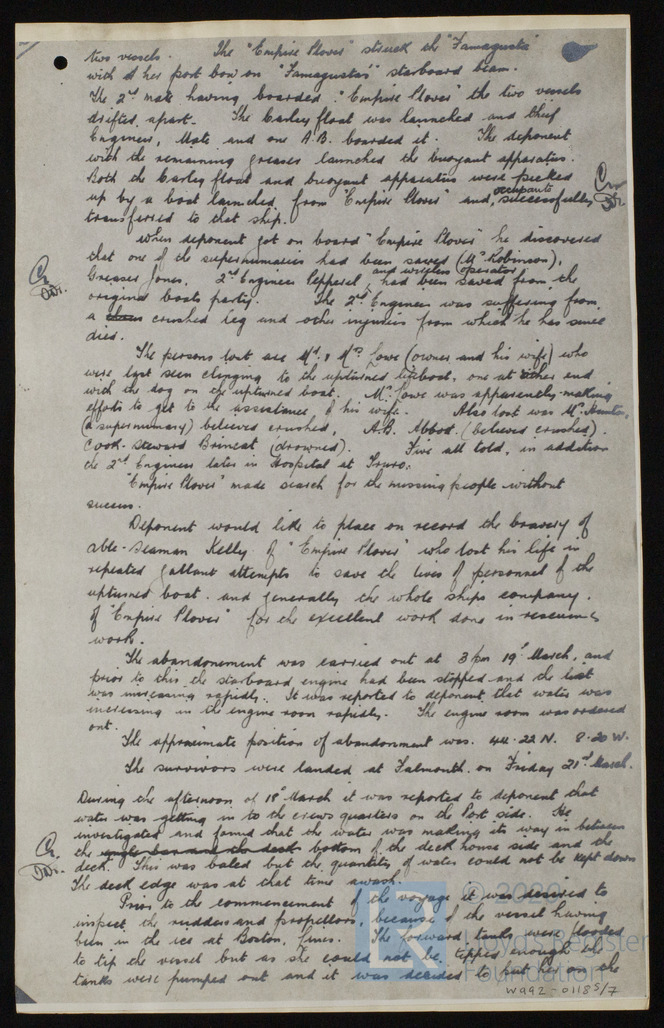 two vessels. The "Empire Plover" struck the "Famagusta"
with her port bow on "Famagusta's" starboard beam.
The 2nd mate having boarded "Empire Plover" the two vessels
drifted apart. The Carley float was launched and Chief
Engineer, Mate and one A.B. boarded it. The deponent
with the remaining greaser launched the buoyant apparatus.
Both the Carley float and buoyant apparatus were picked
up by a boat launched from "Empire Plover" and, occupants successfully
transferred to that ship.
When deponent got on board "Empire Plover" he discovered
that one of the supernumaries had been saved (Mr Robinson),
Greaser Jones, 2nd Engineer Pepperel and wireless operator had been saved from the
original boats party. The 2nd Engineer was suffering from
a crushed leg and other injuries from which he has since
died.
The persons lost are Mr. & Mrs. Lowe (owner and his wife) who
were last seen clinging to the upturned lifeboat, one at either end
with the dog on the upturned boat. Mr. Lowe was apparently making
efforts to get to the assistance of his wife. Also lost was Mr.
(a supernumary) believed crushed, A.B. Abbod. (believed crushed).
Cook-Steward Brincat (drowned). Five all told, in addition
the 2nd Engineer later in Hospital at Truro.
"Empire Plover" made search for the missing people without
success.
Deponent would like to place on record the bravery of
able-seaman Kelly of "Empire Plover" who lost his life in
repeated gallant attempts to save the lives of personnel of the
upturned boat. and generally the whole ships company.
of "Empire Plover" for the excellent work done in rescuing
work.
The abandonement was carried out at 3 pm 19th March, and
prior to this the starboard engine had been stopped and the list
was increasing rapidly. It was reported to deponent that water was
increasing in the engine room rapidly. The engine room was ordered
out.
The approximate position of abandonment was. 44.22 N. 8.20 W.
The survivors were landed at Falmouth. on Friday 21st March.
During the afternoon of 18th March it was reported to deponent that
water was getting in to the crews quarters on the Port side. He
investigated and found that the water was making its way in between
the angle bar and the deck bottom of the deck house side and the
deck. This was baled but the quantity of water could not be kept down
The deck edge was at that time awash.
Prior to the commencement of the voyage it was desired to
inspect the rudders and propellors, because of the vessel having
been in the ice at Boston, Lincs. The forward tanks were flooded
to tip the vessel but as she could not be tipped enough the
tanks were pumped out and it was decided to put her on the
© 2020
Lloyd's Register
Foundation
W992-0118S/7